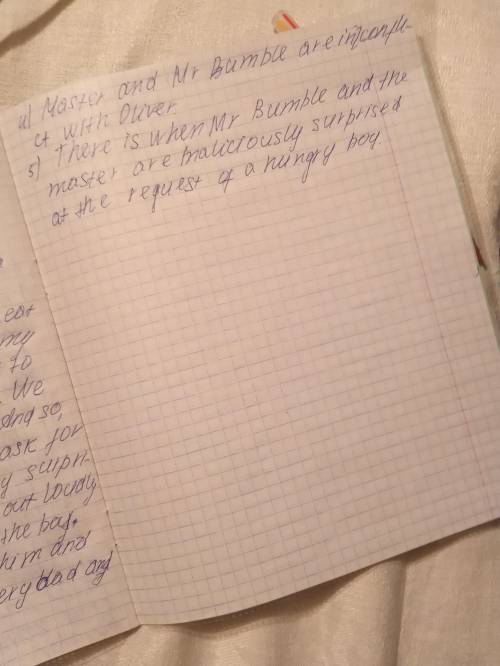 4) Master and Mr Bumble are in confli-
ct with Oliver.
5) There is when Mr Bumble and the
master are maliciously surprised
at the request of a hungry boy.
eat
my
to
We
And so,
ask for
y surpri-
out loudly
the boy.
him and
ery bad and